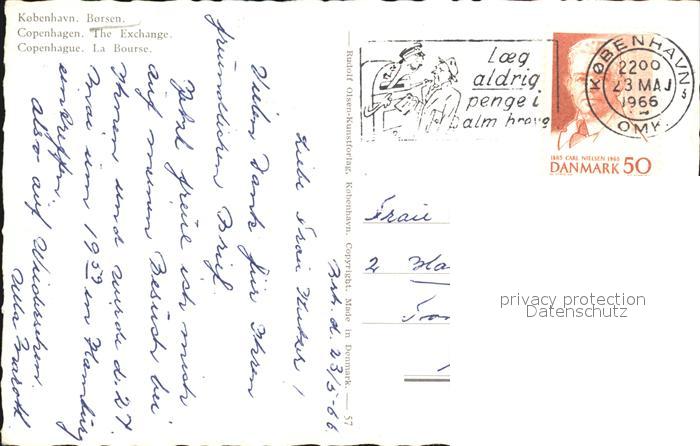 København. Børsen.
Copenhagen. The Exchange.
Copenhague. La Bourse.
Bsh. d. 23/5-66.
Liebe Frau
Vielen Dank für Ihren
freundlichen Brief.
Jetzt freue ich mich
auf meinen Besuch bei
Ihnen und würde d. 27.
Mai um 19⁵⁹ in Hamburg
eintreffen.
Also auf Wiedersehen.
Ulla
— Rudolf Olsen-Kunstforlag, København. Copyright. Made in Denmark. — 57
læg
aldrig
penge i
alm breve
KØBENHAVN
2200
23 MAJ
1966
OMK.
1865 CARL NIELSEN 1965
DANMARK 50
Frau
2
privacy protection
Datenschutz